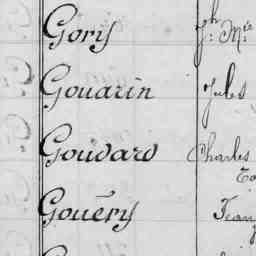 Gory Jh Mie
Gouarin Jules
Goudard Charles
Gouëry